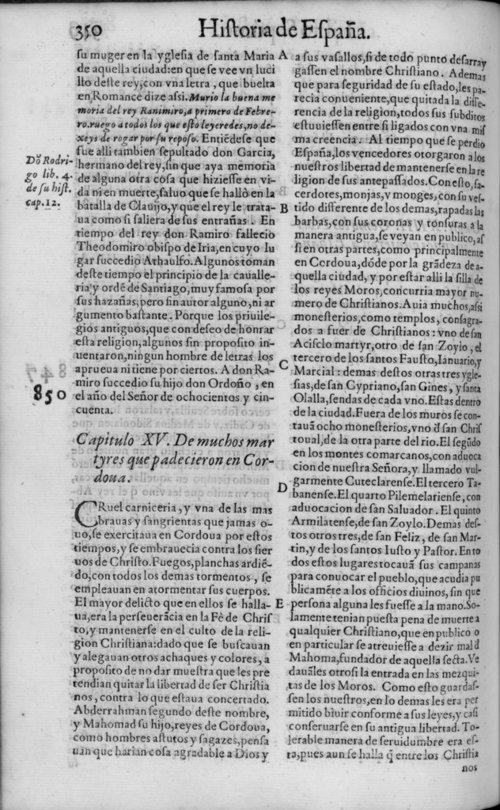 350
Historia de España.
su muger en la yglesia de santa Maria
de aquella ciudad: en que se vee vn luci
llo deste rey, con vna letra, que buelta
en Romance dize assi. Murio la buena me
moria del rey Ranimiro, a primero de Febre-
ro. ruego a todos los que esto leyeredes, no de-
xeys de rogar por su reposo. Entiẽdese que
fue alli tambien sepultado don Garcia,
hermano del rey, sin que aya memoria
de alguna otra cosa que hiziesse en vi-
da ni en muerte, saluo que se hallò en la
batalla de Clauijo, y que el rey le trata-
ua como si saliera de sus entrañas. En
tiempo del rey don Ramiro fallecio
Theodomiro obispo de Iria, en cuyo lu
gar succedio Athaulfo. Algunos toman
deste tiempo el principio de la cauallе-
ria y ordẽ de Santiago, muy famosa por
sus hazañas; pero sin autor alguno, ni ar
gumento bastante. Porque los priuile-
gios antiguos, que con deseo de honrar
esta religion, algunos sin proposito in-
uentaron, ningun hombre de letras los
aprueua ni tiene por ciertos. A don Ra-
miro succedio su hijo don Ordoño, en
el año del Señor de ochocientos y cin-
cuenta.
Dõ Rodri-
go lib. 4.
de su hist.
cap. 12.
850
Capitulo XV. De muchos mar
tyres que padecieron en Cor-
doua.
CRuel carniceria, y vna de las mas
brauas y sangrientas que jamas o-
uo, se exercitaua en Cordoua por estos
tiempos, y se embrauecia contra los sier
uos de Christo. Fuegos, planchas ardiẽ-
do, con todos los demas tormentos, se
empleauan en atormentar sus cuerpos.
El mayor delicto que en ellos se halla-
ua, era la perseuerãcia en la Fè de Chris
to, y mantenerse en el culto de la reli-
gion Christiana: dado que se buscauan
y alegauan otros achaques y colores, a
proposito de no dar muestra que les pre
tendian quitar la libertad de ser Christia
nos, contra lo que estaua concertado.
Abderrahman segundo deste nombre,
y Mahomad su hijo, reyes de Cordoua,
como hombres astutos y sagazes, pensa
uan que harian cosa agradable a Dios y
A
B
C
D
E
a sus vasallos, si de todo punto desarray
gassen el nombre Christiano. Ademas
que para seguridad de su estado, les pa-
recia conueniente, que quitada la diffe-
rencia de la religion, todos sus subditos
estuuiessen entre si ligados con vna mis
ma creencia. Al tiempo que se perdio
España, los vencedores otorgaron a los
nuestros libertad de mantenerse en la re
ligion de sus antepassados. Con esto, sa-
cerdotes, monjas, y monges, con su ves-
tido differente de los demas, rapadas las
barbas, con sus coronas y tonsuras a la
manera antigua, se veyan en publico, as
si en otras partes, como principalmente
en Cordoua, dõde por la grãdeza de a-
quella ciudad, y por estar alli la silla de
los reyes Moros, concurria mayor nu-
mero de Christianos. Auia muchos, assi
monesterios, como templos, consagra-
dos a fuer de Christianos: vno de san
Acisclo martyr, otro de san Zoylo, el
tercero de los santos Fausto, Ianuario, y
Marcial: demas destos otras tres ygle-
sias, de san Cypriano, san Gines, y santa
Olalla, sendas de cada vno. Estas dentro
de la ciudad. Fuera de los muros se con-
tauã ocho monesterios, vno ď san Chris
toual, de la otra parte del rio. El segũdo
en los montes comarcanos, con aduoca
cion de nuestra Señora, y llamado vul-
garmente Cuteclarense. El tercero Ta-
banense. El quarto Pilemelariense, con
aduocacion de san Saluador. El quinto
Armilatense, de san Zoylo. Demas des-
tos otros tres, de san Feliz, de san Mar-
tin, y de los santos Iusto y Pastor. En to
dos estos lugares tocauã sus campanas
para conuocar el pueblo, que acudia pu
blicamẽte a los officios diuinos, sin que
persona alguna les fuesse a la mano. So-
lamente tenian puesta pena de muerte a
qualquier Christiano, que en publico o
en particular se atreuiesse a dezir mal ď
Mahoma, fundador de aquella secta. Ve
dauãles otrosi la entrada en las mezqui-
tas de los Moros. Como esto guardas-
sen los nuestros, en lo demas les era per
mitido biuir conforme a sus leyes, y casi
conseruarse en su antigua libertad. To-
lerable manera de seruidumbre era es-
ta, pues aun se halla q̃ entre los Christia
nos